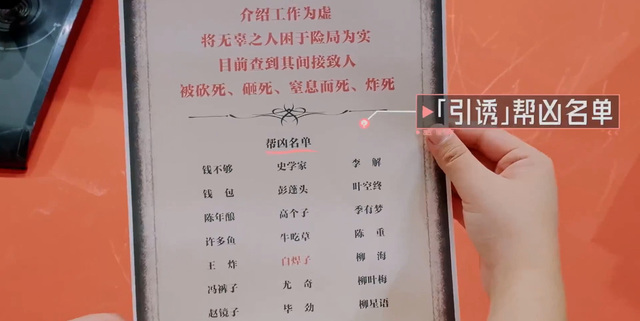 介绍工作为虚
将无辜之人困于险局为实
目前查到其间接致人
被砍死、砸死、窒息而死、炸死
「引诱」帮凶名单
帮凶名单
钱不够 史学家 李解
钱包 彭蓬头 叶空终
陈年酿 高个子 季有梦
许多鱼 牛吃草 陈重
王炸 白焊子 柳海
冯裤子 尤奇 柳叶梅
赵镜子 毕劲 柳星语